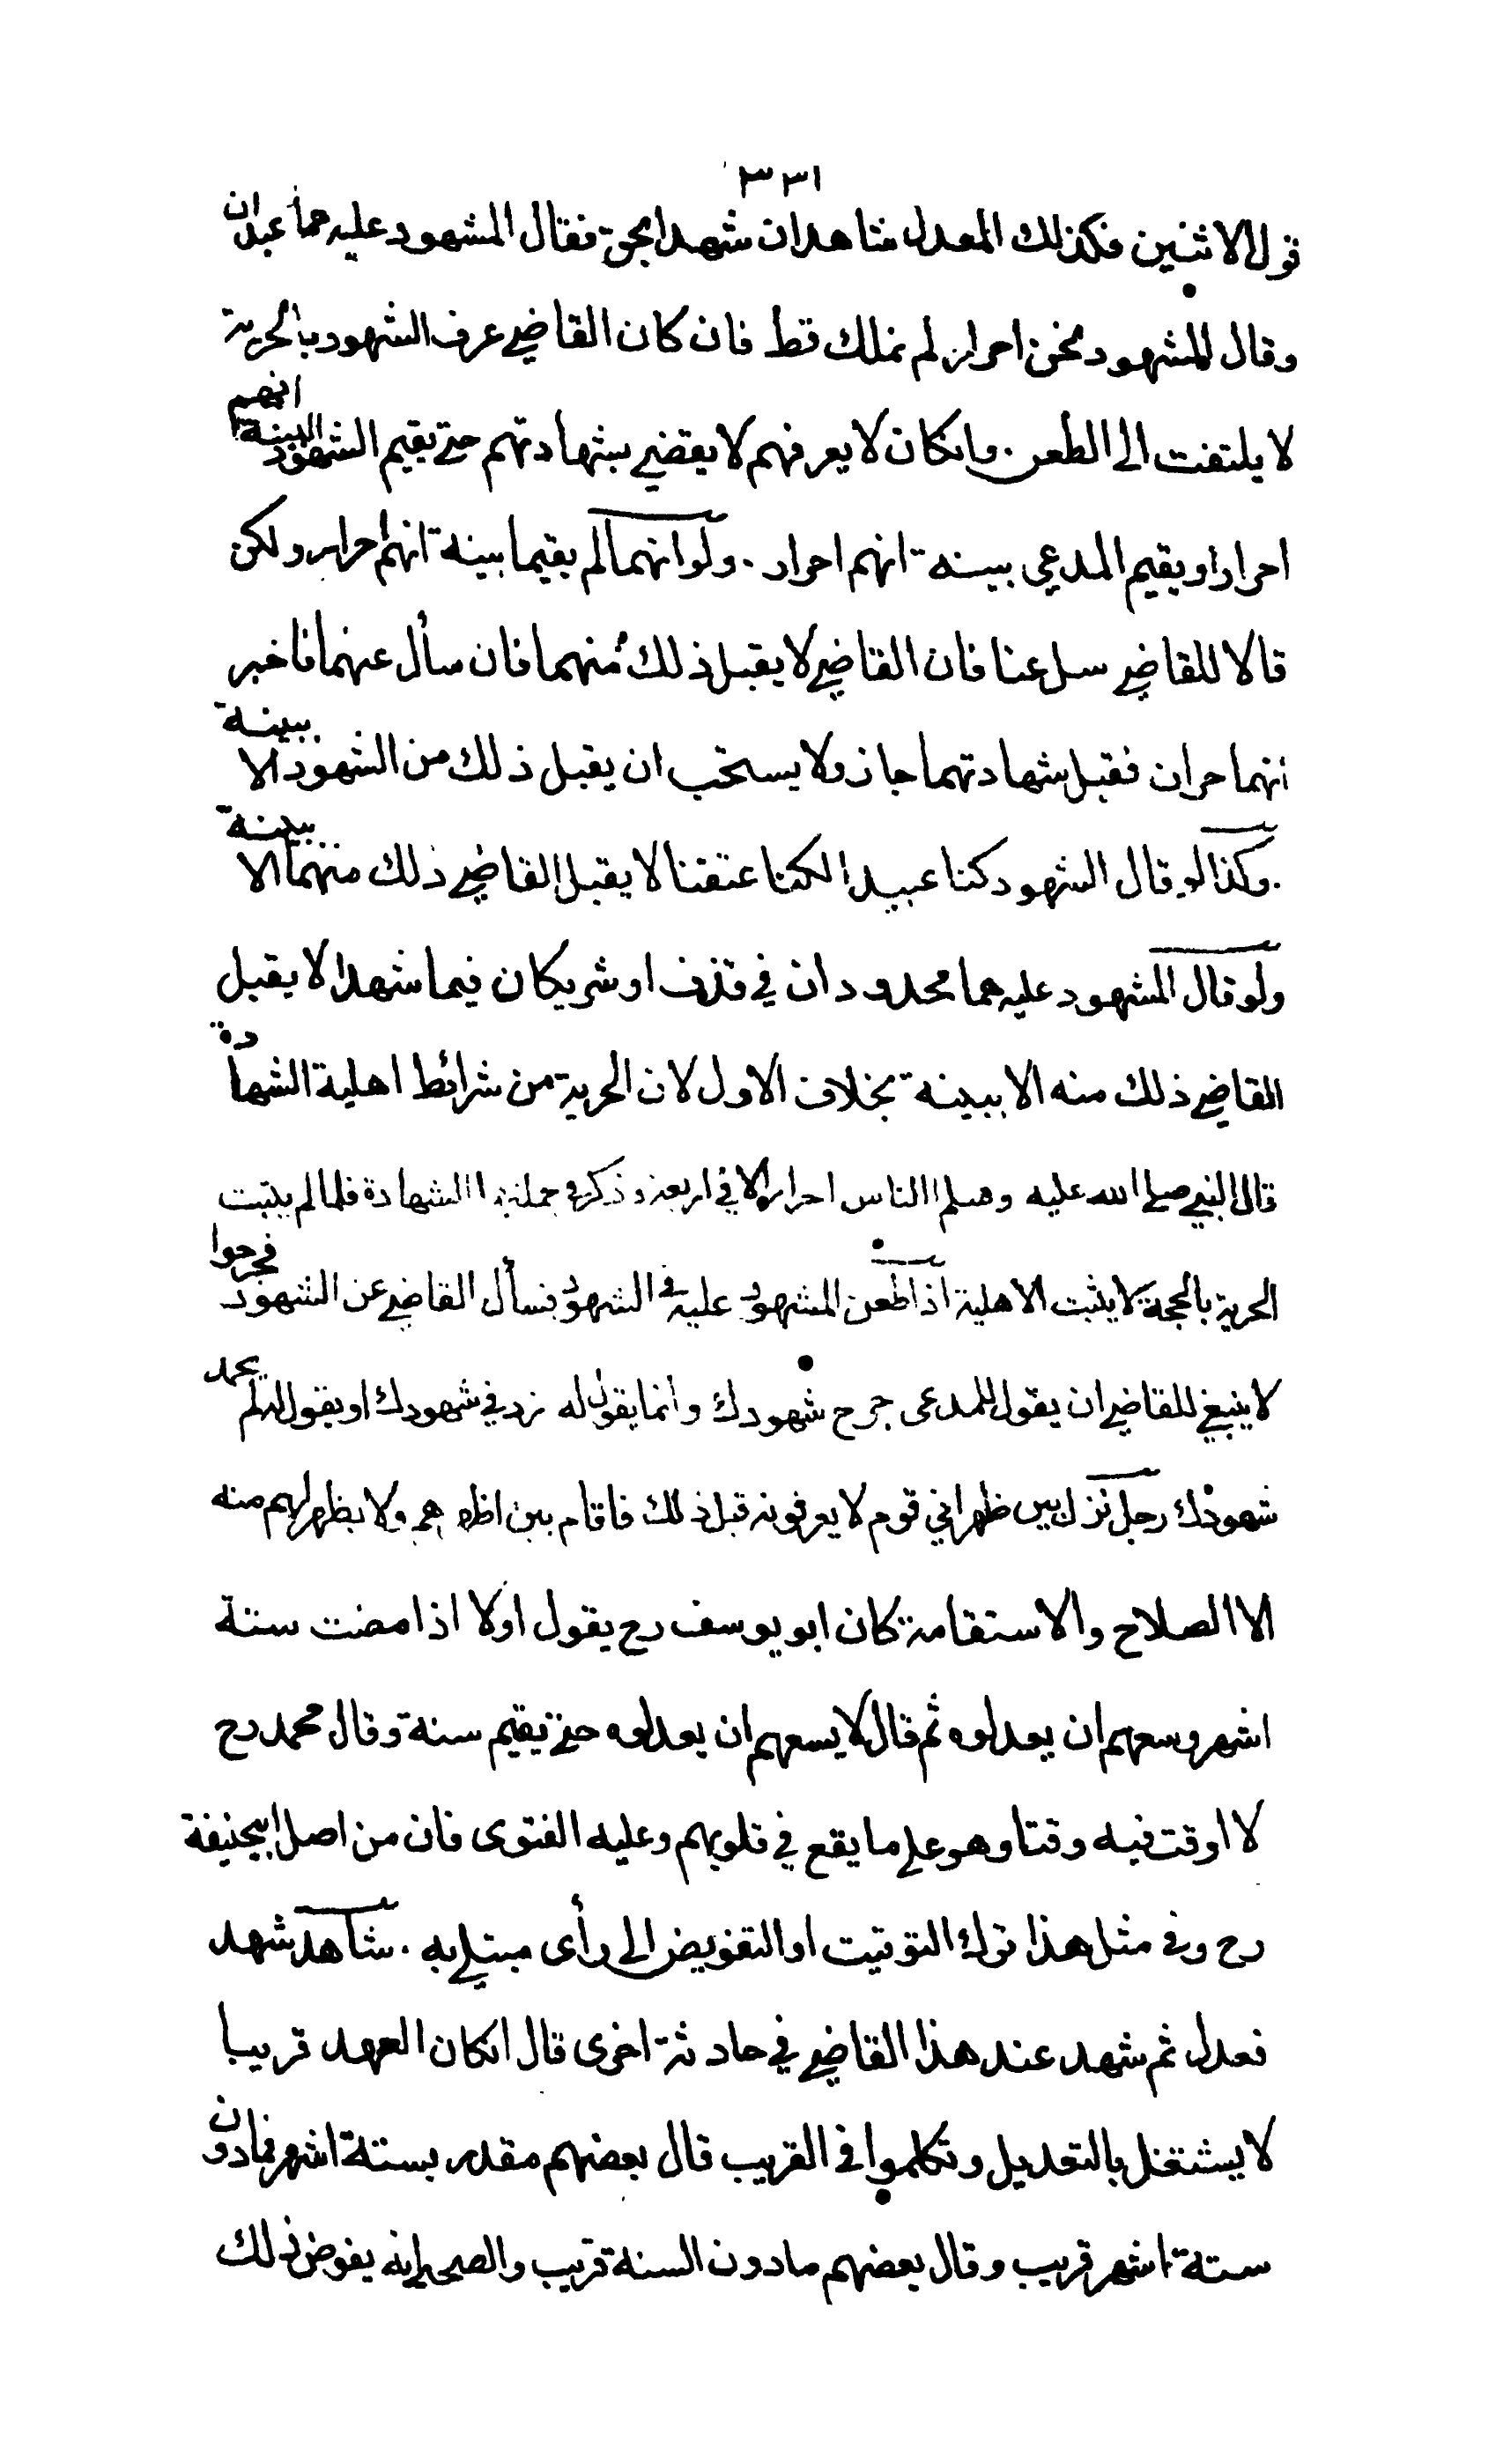 ٣٣١
قول الاثنين فكذلك المعدل شاهدان شهدا بحق فقال المشهود عليه هما عبدان
وقال المشهود نحن احرار لم نملك قط فان كان القاضي عرف الشهود بالحرية
لا يلتفت الى الطعن . وانكان لا يعرفهم لا يقضي بشهادتهم حتى يقيم الشهود البينة انهم
احرار او يقيم المدعي بينة انهم احرار . ولو انهما لم يقيما بينة انهم احرار ولكن
قالا للقاضي سل عنا فان القاضي لا يقبل ذلك منهما فان سأل عنهما فاخبر
انهما حران فقبل شهادتهما جاز ولا يستحب ان يقبل ذلك من الشهود الا ببينة
. وكذا لو قال الشهود كنا عبيدا لكننا عتقنا لا يقبل القاضي ذلك منهما الا ببينة
ولو قال المشهود عليه هما محدودان في قذف او شريكان فيما شهدا لا يقبل
القاضي ذلك منه الا ببينة بخلاف الاول لان الحرية من شرائط اهلية الشهادة
قال النبي صلى الله عليه وسلم الناس احرار الا في اربعة وذكر في جملتها الشهادة فلما لم يثبت
الحرية بالحجة لا يثبت الاهلية اذا طعن المشهود عليه في الشهود فسأل القاضي عن الشهود فجرحوا
لا ينبغي للقاضي ان يقول للمدعى جرح شهودك وانما يقول له زد في شهودك او يقول له لم يحمد
شهودك رجل نزل بين ظهراني قوم لا يعرفونه قبل ذلك فاقام بين اظهرهم ولا يظهر لهم منه
الا الصلاح والاستقامة كان ابو يوسف رح يقول اولا اذا مضت ستة
اشهر وسعهم ان يعدلوه ثم قال لا يسعهم ان يعدلوه حتى يقيم سنة وقال محمد رح
لا اوقت فيه وقتا وهو على ما يقع في قلوبهم وعليه الفتوى فان من اصل ابيحنيفة
رح وفي مثل هذا ترك التوقيت او التفويض الى رأى مبتلى به . شاهد شهد
فعدل ثم شهد عند هذا القاضي في حادثة اخرى قال انكان العهد قريبا
لا يشتغل بالتعديل وتكلموا في القريب قال بعضهم مقدر بستة اشهر فما دون
ستة اشهر قريب وقال بعضهم مادون السنة قريب والصحيح انه يفوض ذلك